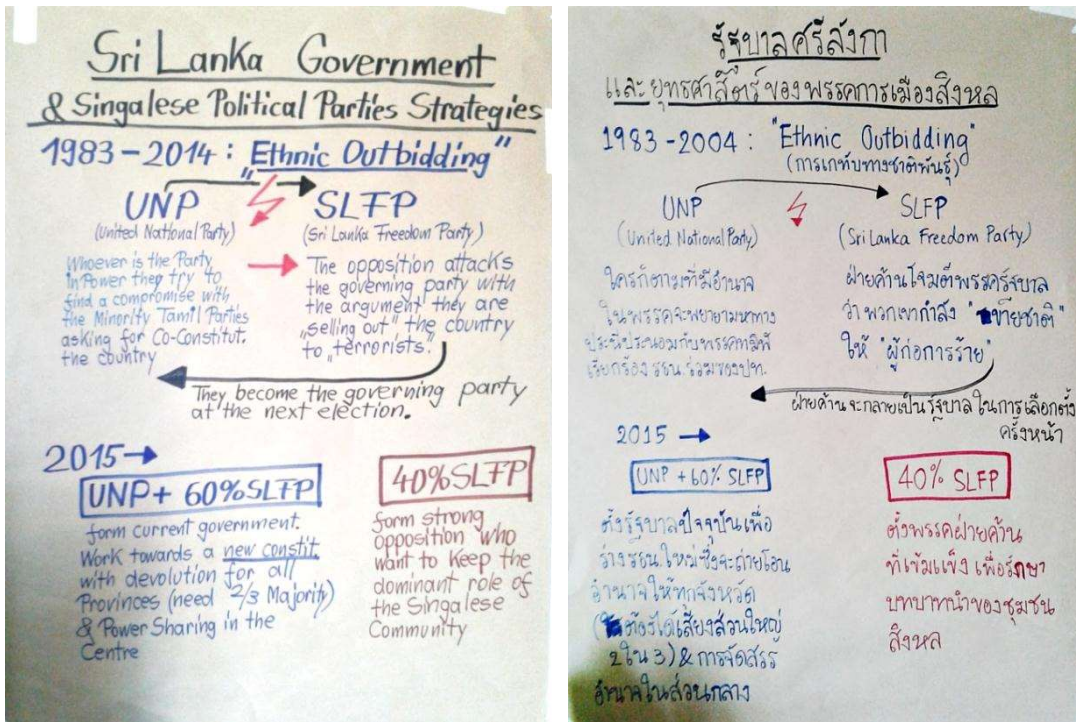 Sri Lanka Government
& Singalese Political Parties Strategies
1983-2014: "Ethnic Outbidding"
UNP
(United National Party)
Whoever is the Party
in Power they try to
find a compromise with
the Minority Tamil Parties
asking for Co-Constitut.
the country
SLFP
(Sri Lanka Freedom Party)
The opposition attacks
the governing party with
the argument they are
„selling out" the country
to „terrorists."
They become the governing party
at the next election.
2015→
UNP+ 60%SLFP
form current government.
Work towards a new constit.
with devolution for all
Provinces (need 2/3 Majority)
& Power Sharing in the
Centre
40%SLFP
form strong
opposition who
want to keep the
dominant role of
the Singalese
Community
รัฐบาลศรีลังกา
และยุทธศาสตร์ของพรรคการเมืองสิงหล
1983-2004: "Ethnic Outbidding"
(การเกทับทางชาติพันธุ์)
UNP
(United National Party)
ใครก็ตามที่มีอำนาจ
ในพรรคจะพยายามหาทาง
ประนีประนอมกับพรรคทมิฬ
เรียกร้อง รธน. ร่วมของปท.
SLFP
(Sri Lanka Freedom Party)
ฝ่ายค้านโจมตีพรรครัฐบาล
ว่าพวกเขากำลัง "ขายชาติ"
ให้ "ผู้ก่อการร้าย"
ฝ่ายค้านจะกลายเป็นรัฐบาลในการเลือกตั้ง
ครั้งหน้า
2015 →
UNP + 60% SLFP
ตั้งรัฐบาลปัจจุบันเพื่อ
ร่างรธน.ใหม่ซึ่งจะถ่ายโอน
อำนาจให้ทุกจังหวัด
(ต้องได้เสียงส่วนใหญ่
2 ใน 3) & การจัดสรร
อำนาจในส่วนกลาง
40% SLFP
ตั้งพรรคฝ่ายค้าน
ที่เข้มแข็งเพื่อรักษา
บทบาทนำของชุมชน
สิงหล